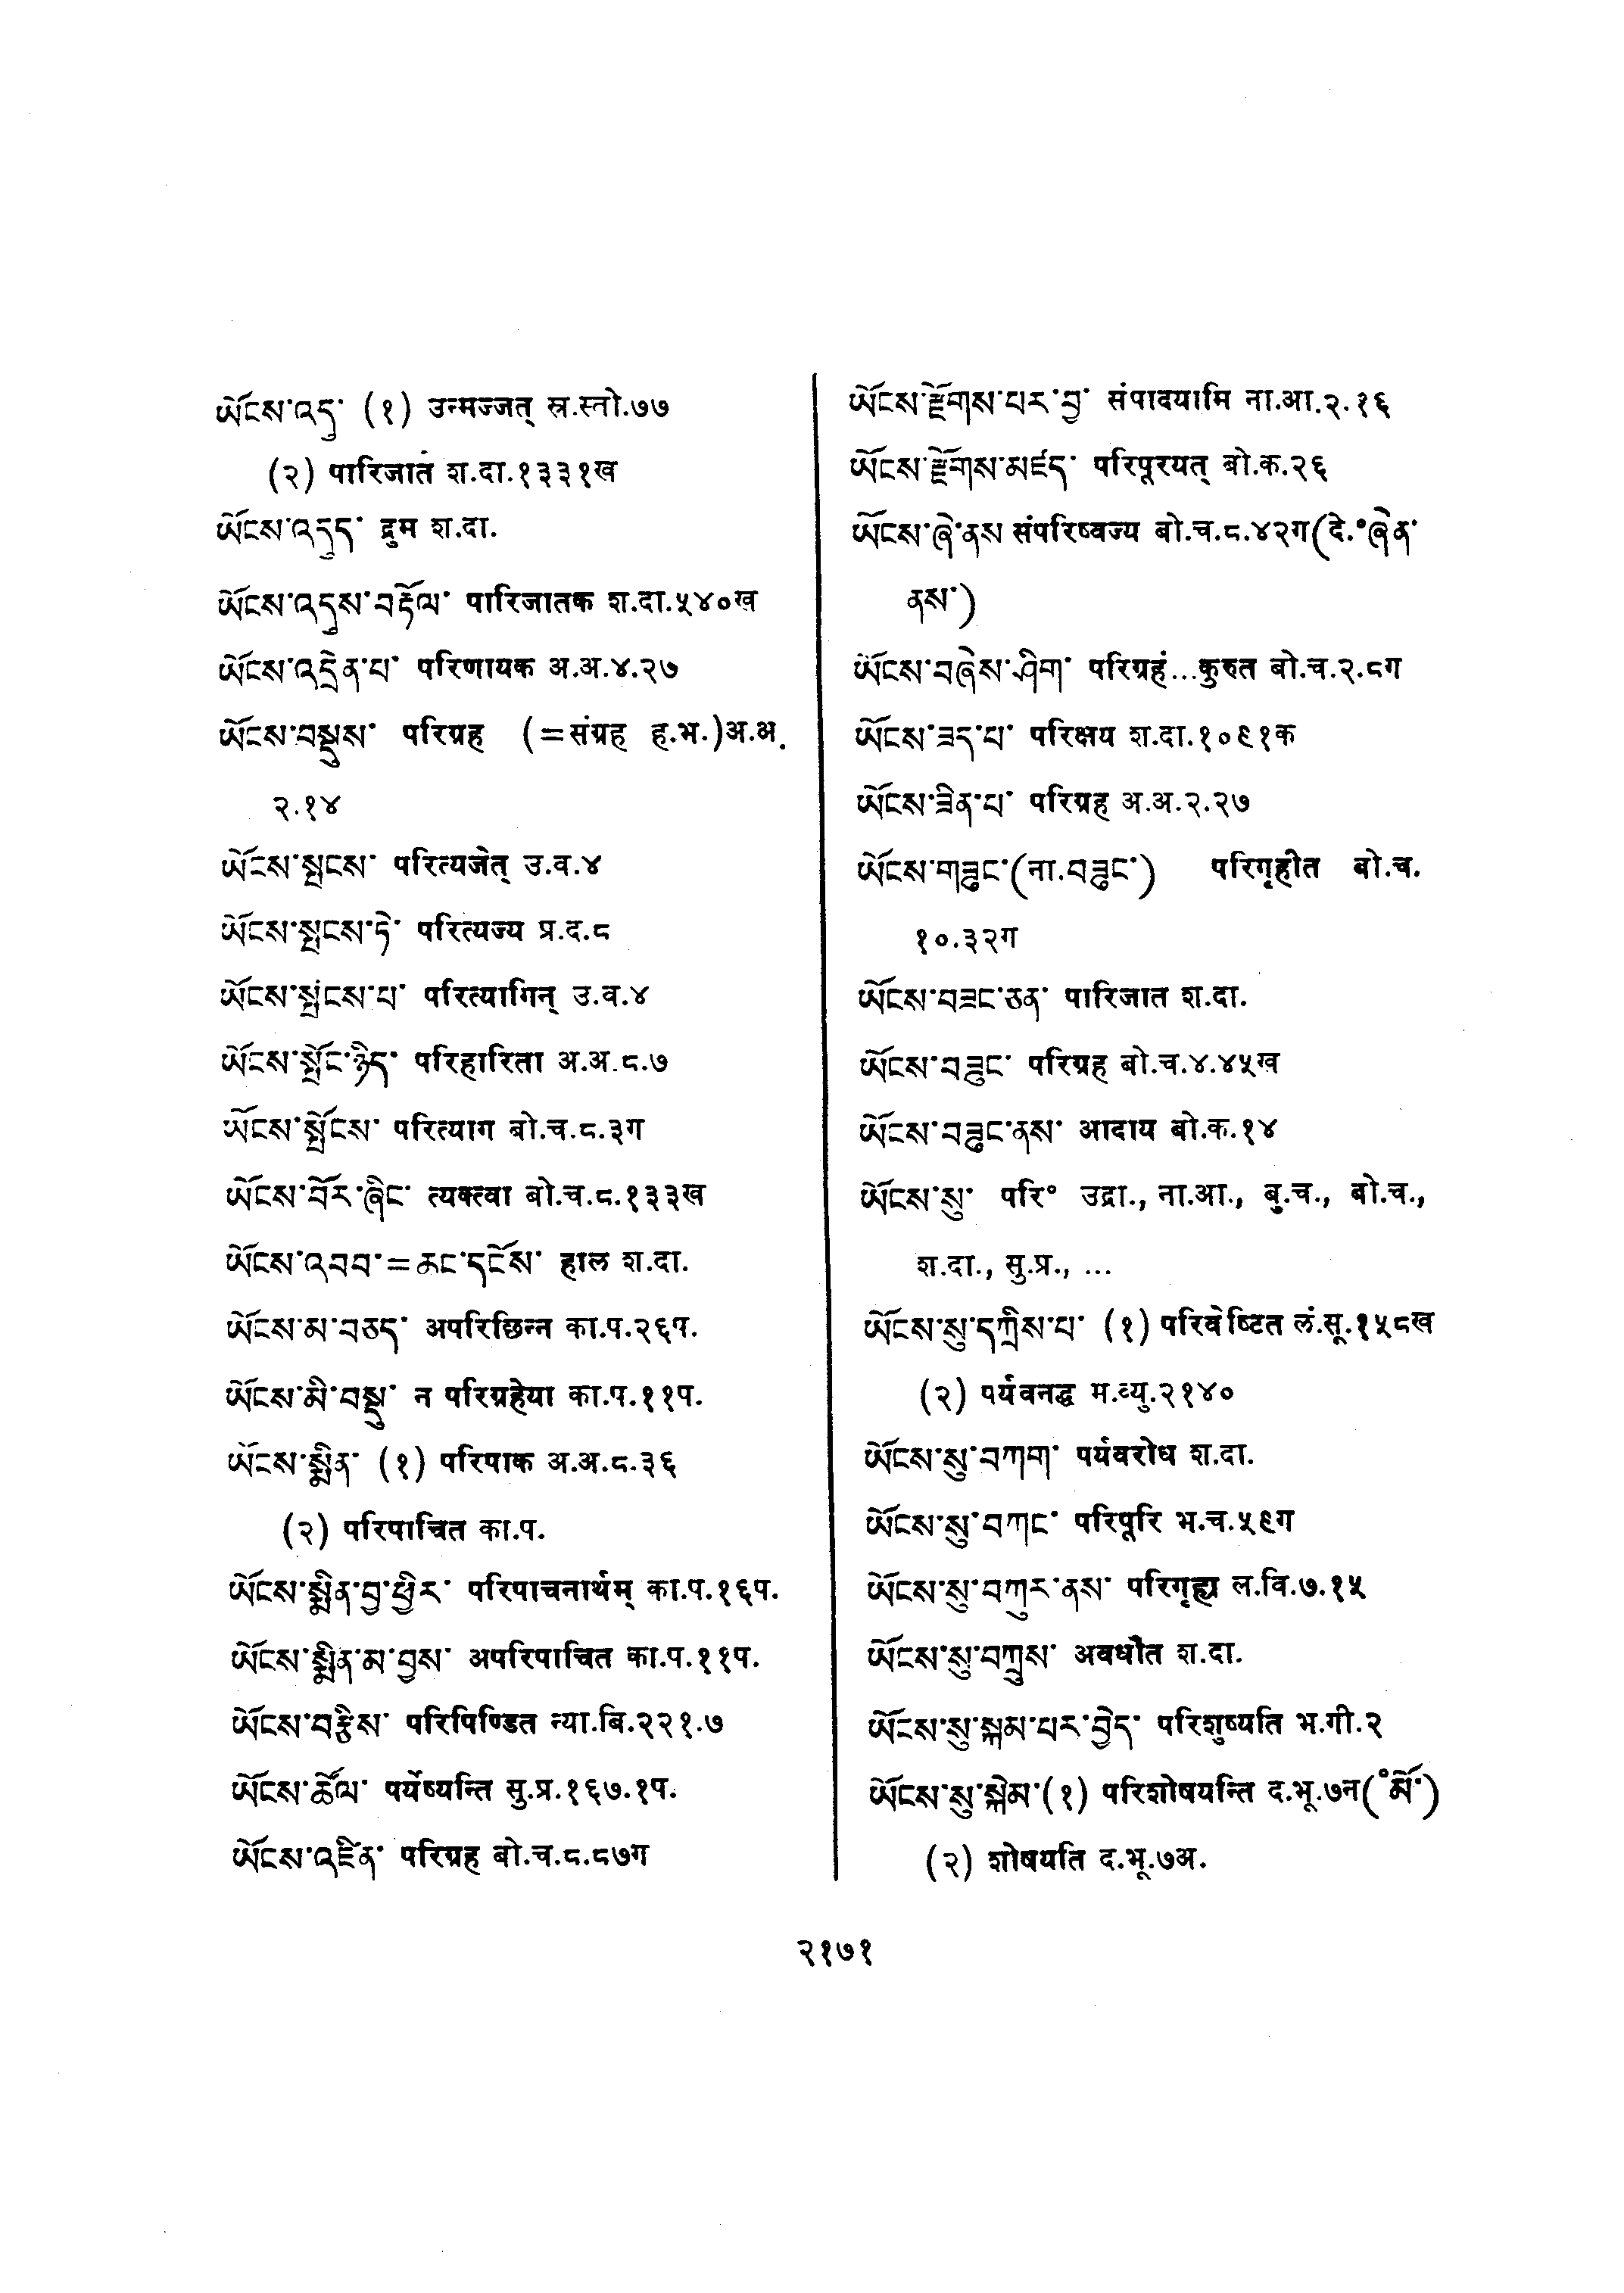 ཡོངས་འདུ་ (१) उन्मज्जत् स्र.स्तो.७७
(२) पारिजात श.दा.१३३१ख
ཡོངས་འདུད་ द्रुम श.दा.
ཡོངས་འདུས་བརྟོལ་ पारिजातक श.दा.५४०ख
ཡོངས་འདྲེན་པ་ परिणायक अ.अ.४.२७
ཡོངས་བསྡུས་ परिग्रह (=संग्रह ह.भ.)अ.अ.
२.१४
ཡོངས་སྤངས་ परित्यजेत् उ.व.४
ཡོངས་སྤངས་ཏེ་ परित्यज्य प्र.द.८
ཡོངས་སྤངས་པ་ परित्यागिन् उ.व.४
ཡོངས་སྤོང་ཉིད་ परिहारिता अ.अ.८.७
ཡོངས་སྤོངས་ परित्याग बो.च.८.३ग
ཡོངས་བོར་ཞིང་ त्यक्त्वा बो.च.८.१३३ख
ཡོངས་འབབ་=ཆང་དངོས་ हाल श.दा.
ཡོངས་མ་བཅད་ अपरिछिन्न का.प.२६प.
ཡོངས་མི་བསྡུ་ न परिग्रहेया का.प.११प.
ཡོངས་སྨིན་ (१) परिपाक अ.अ.८.३६
(२) परिपाचित का.प.
ཡོངས་སྨིན་བྱ་ཕྱིར་ परिपाचनार्थम् का.प.१६प.
ཡོངས་སྨིན་མ་བྱས་ अपरिपाचित का.प.११प.
ཡོངས་བརྩིས་ परिपिण्डित न्या.बि.२२१.७
ཡོངས་ཚོལ་ पर्येष्यन्ति सु.प्र.१६७.१प.
ཡོངས་འཛིན་ परिग्रह बो.च.८.८७ग
ཡོངས་རྫོགས་པར་བྱ་ संपादयामि ना.आ.२.१६
ཡོངས་རྫོགས་མཛད་ परिपूरयत् बो.क.२६
ཡོངས་ཞེ་ནས संपरिष्वज्य बो.च.८.४२ग(दे.°ཞེན་
ནས་)
ཡོངས་བཞེས་ཤིག་ परिग्रहं...कुरुत बो.च.२.८ग
ཡོངས་ཟད་པ་ परिक्षय श.दा.१०९१क
ཡོངས་ཟིན་པ་ परिग्रह अ.अ.२.२७
ཡོངས་གཟུང་(ना.བཟུང་) परिगृहीत बो.च.
१०.३२ग
ཡོངས་བཟང་ཅན་ पारिजात श.दा.
ཡོངས་བཟུང་ परिग्रह बो.च.४.४५ख
ཡོངས་བཟུང་ནས་ आदाय बो.क.१४
ཡོངས་སུ་ परि° उद्रा., ना.आ., बु.च., बो.च.,
श.दा., सु.प्र., ...
ཡོངས་སུ་དཀྲིས་པ་ (१) परिवेष्टित लं.सू.१५८ख
(२) पर्यवनद्ध म.व्यु.२१४०
ཡོངས་སུ་བཀག་ पर्यवरोध श.दा.
ཡོངས་སུ་བཀང་ परिपूरि भ.च.५९ग
ཡོངས་སུ་བཀུར་ནས་ परिगृह्य ल.वि.७.१५
ཡོངས་སུ་བཀྲུས་ अवधौत श.दा.
ཡོངས་སུ་སྐམ་པར་བྱེད་ परिशुष्यति भ.गी.२
ཡོངས་སུ་སྐེམ་(१) परिशोषयन्ति द.भू.७न(°མོ་)
(२) शोषयति द.भू.७अ.
२१७१